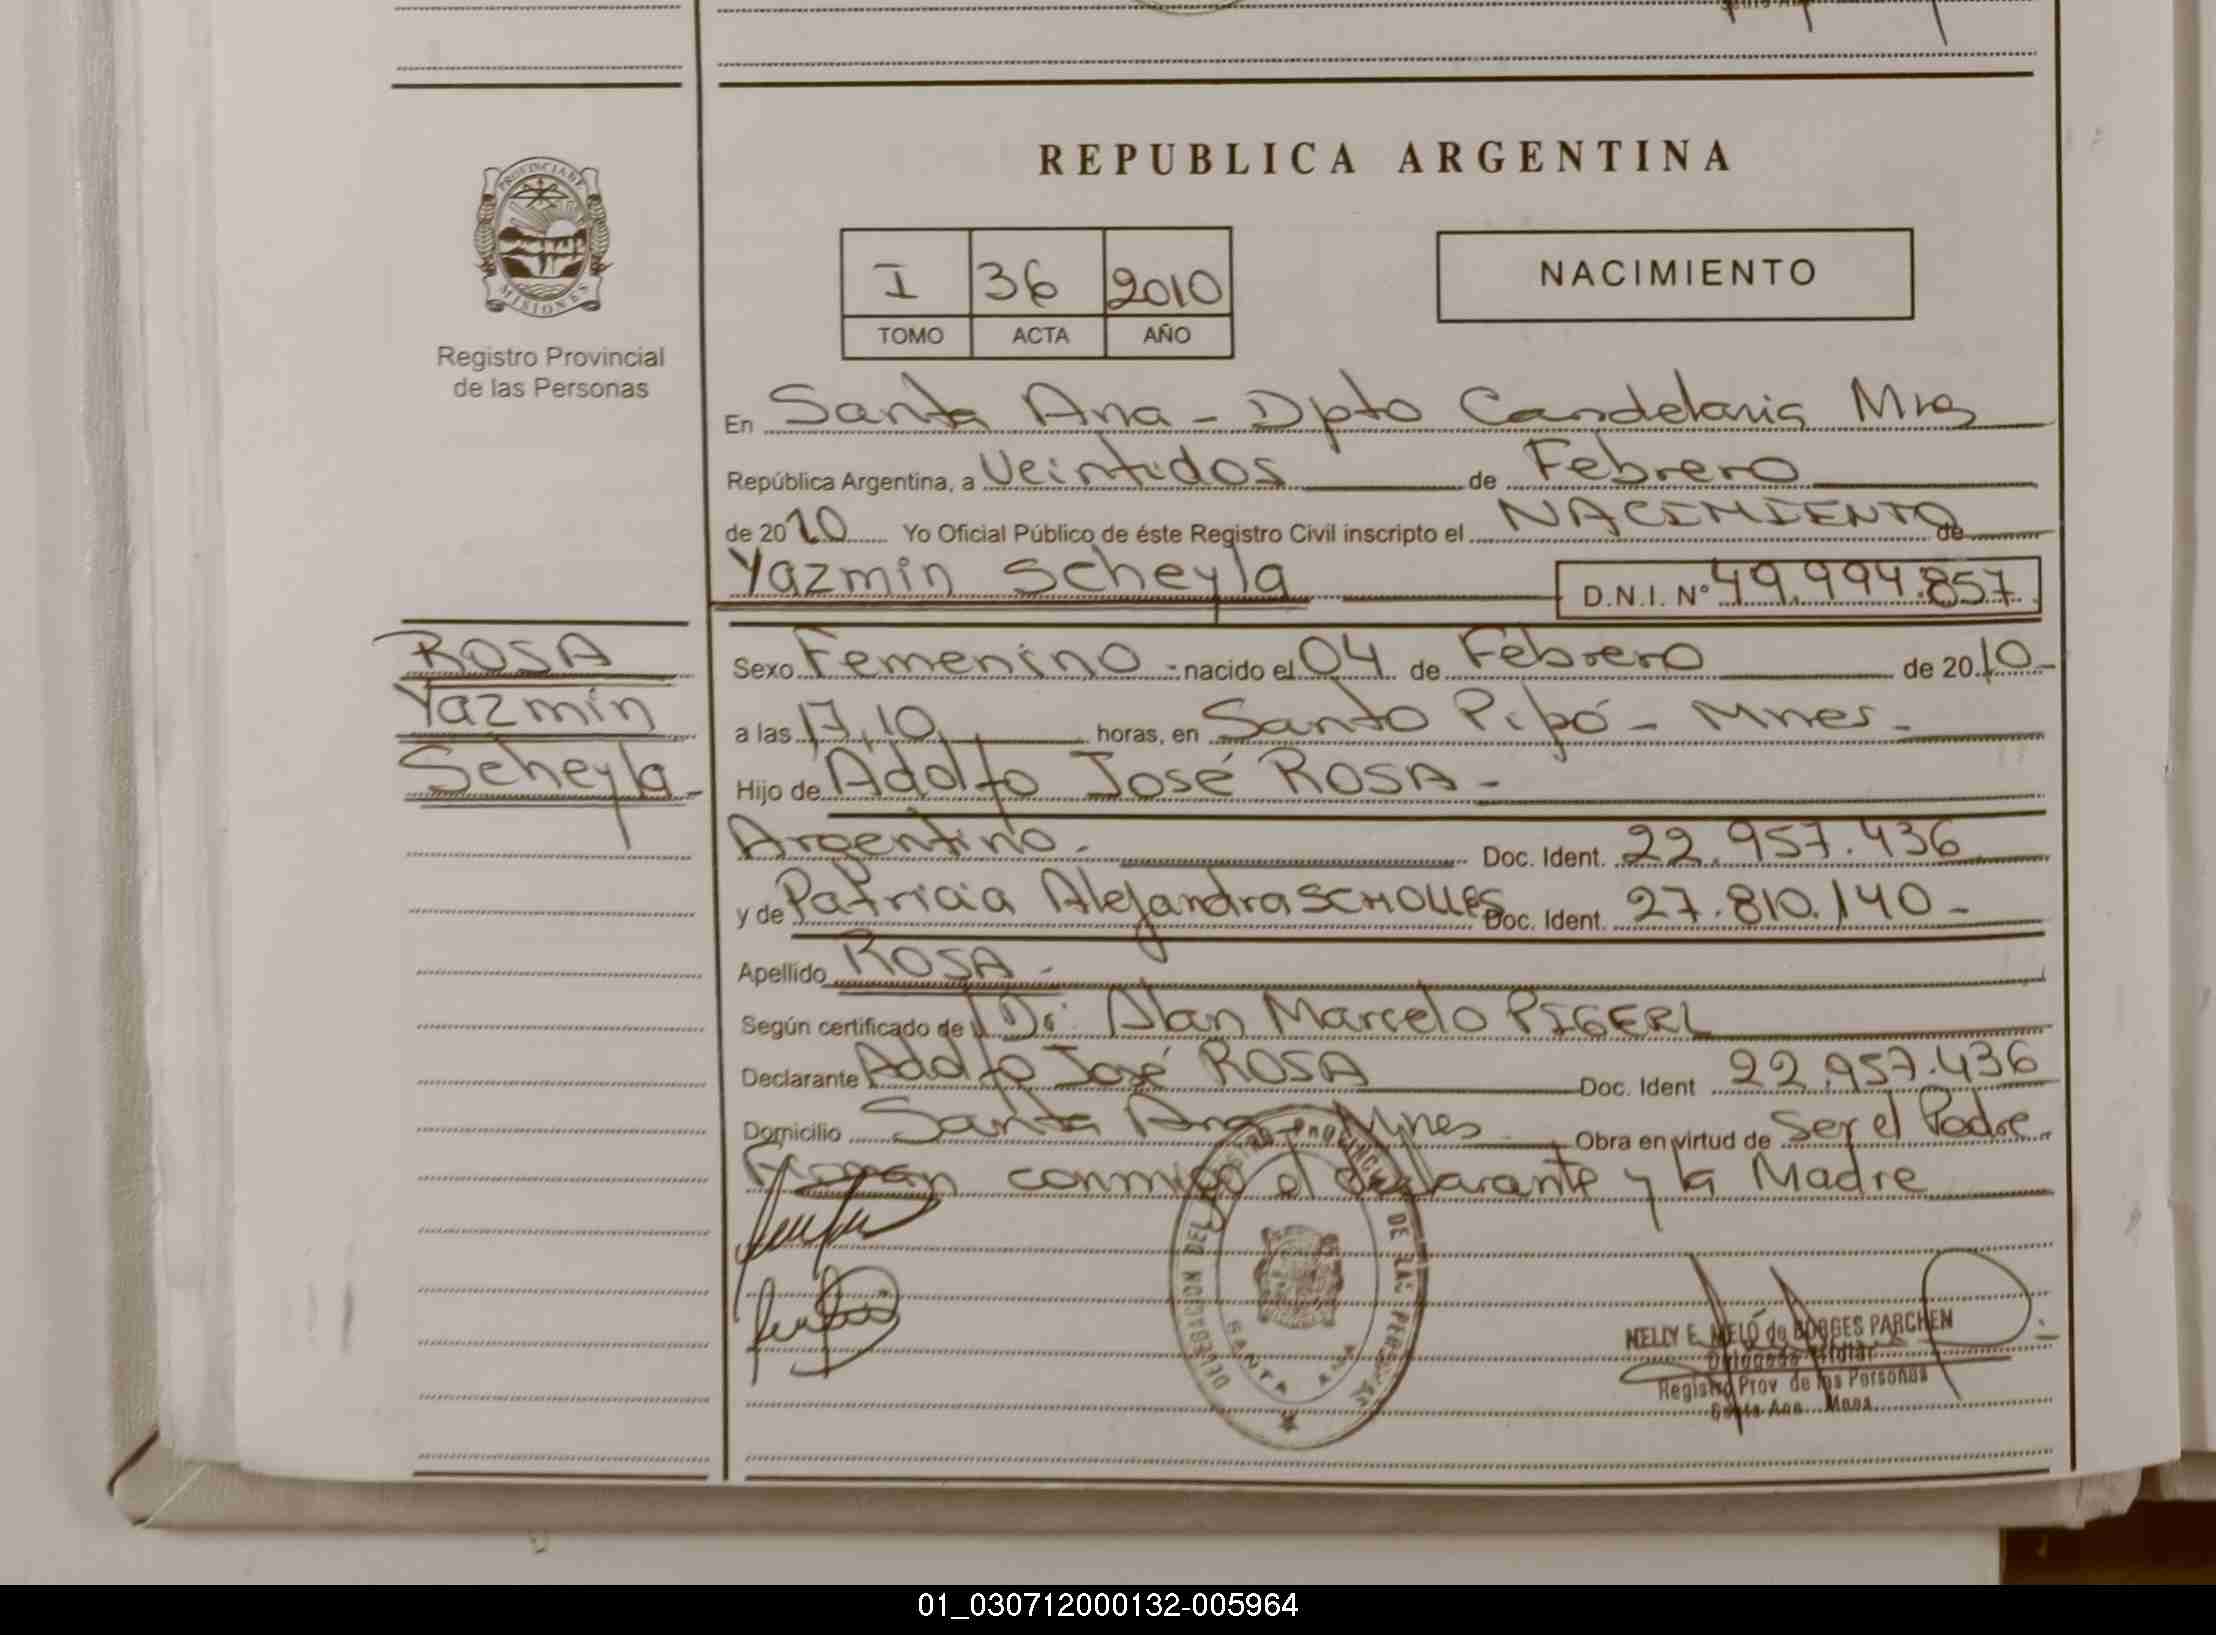 REPUBLICA ARGENTINA
PROVINCIA DE
MISIONES
Registro Provincial
de las Personas
I 36 2010
TOMO ACTA AÑO
NACIMIENTO
En Santa Ana - Dpto Candelaria Mns
República Argentina, a Veintidos de Febrero
de 2010 Yo Oficial Público de éste Registro Civil inscripto el NACIMIENTO de
Yazmin Scheyla D.N.I. Nº 49.994.857
ROSA
Yazmin
Scheyla -
Sexo Femenino - nacido el 04 de Febrero de 2010 -
a las 17,10 horas, en Santo Pipó - Mnes -
Hijo de Adolfo José ROSA -
Argentino - Doc. Ident. 22.957.436
y de Patricia Alejandra SCHOLLES Doc. Ident. 27.810.140 -
Apellido ROSA -
Según certificado de Dr. Alan Marcelo PIGERL
Declarante Adolfo José ROSA Doc. Ident 22.957.436
Domicilio Santa Ana Mnes Obra en virtud de Ser el Padre
Firman conmigo el declarante y la Madre
DELEGACION DEL REGISTRO PROVINCIAL DE LAS PERSONAS
SANTA ANA
NELLY E. MELO de BORGES PARCHEN
Delegada Titular
Registro Prov de las Personas
Santa Ana Mnes
01_030712000132-005964